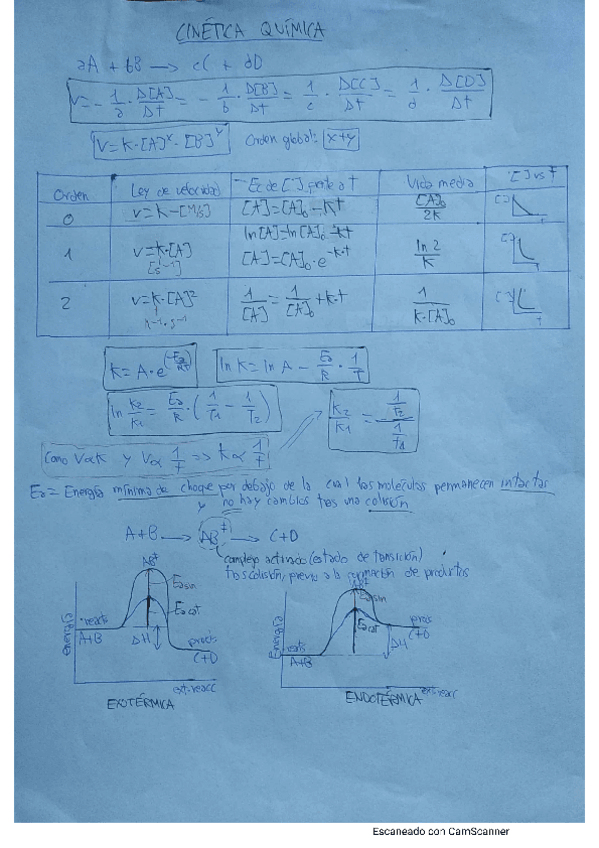 CINÉTICA QUÍMICA
aA + bB → cC + dD
V = - 1/a · Δ[A]/Δt = - 1/b · Δ[B]/Δt = 1/c · Δ[C]/Δt = 1/d · Δ[D]/Δt
V = K·[A]^x · [B]^y Orden global: x+y
Orden Ley de velocidad Ec de [ ] frente a t Vida media [ ] vs t
0 v = K [A] = [A]₀ - Kt [A]₀/2K [ ]
ln[A] = ln[A]₀ - kt
1 v = K·[A] [A] = [A]₀ · e^(-k·t) ln 2/K [ ]
[s⁻¹]
2 v = K·[A]² 1/[A] = 1/[A]₀ + K·t 1/K·[A]₀ [ ] t
K = A·e^(-Ea/RT) ln K = ln A - Ea/R · 1/T
ln K2/K1 = Ea/R · (1/T1 - 1/T2) K2/K1 = (1/T2)/(1/T1)
Como V∝K y V∝ 1/t => K∝ 1/t
Ea = Energía mínima de choque por debajo de la cual las moléculas permanecen intactas
y no hay cambios tras una colisión
A+B → AB‡ → C+D
complejo activado (estado de transición)
tras colisión, previo a la formación de productos
AB‡
Ea sin
Ea cat
Energía
reacts
A+B
ΔH
prods
C+D
ext. reacc
EXOTÉRMICA
AB‡
Ea sin
Ea cat
Energía
reacts
A+B
ΔH
prods
C+D
ext. reacc
ENDOTÉRMICA
Escaneado con CamScanner